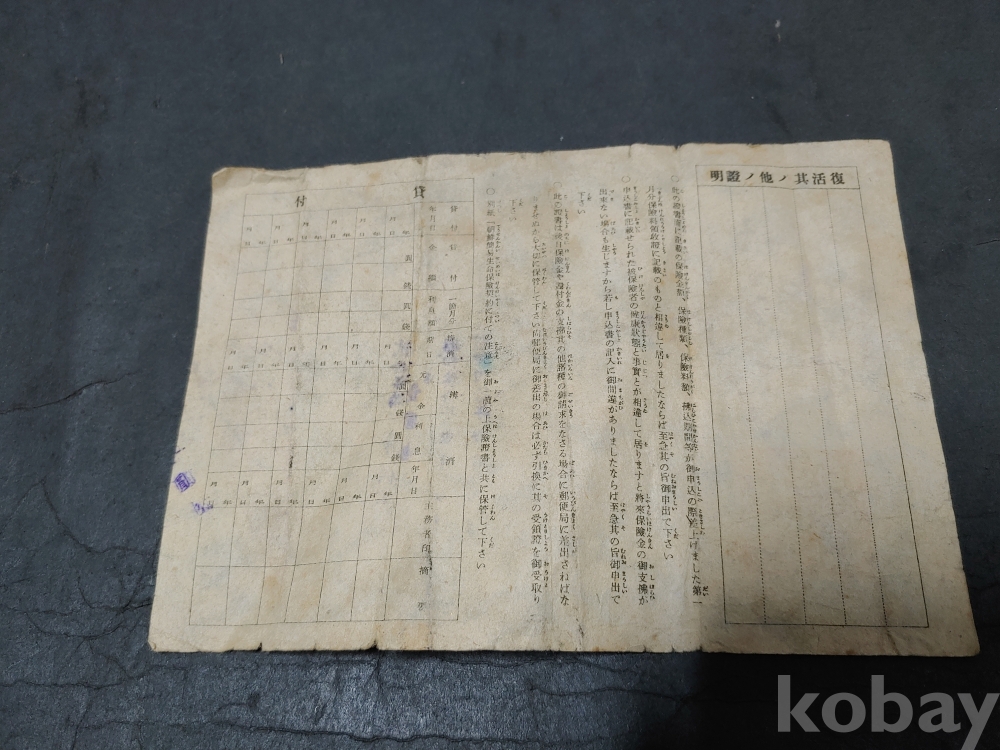 復活其ノ他ノ證明
○此の證書面に記載の保險金額、保險種類、保險料額、拂込期間等が御申込の際差上げました第一
月分保險料領收證に記載のものと相違して居りましたならば至急其の旨御申出で下さい
○申込書に記載せられた被保險者の健康狀態と事實とが相違して居りますと將來保險金の御支拂が
出來ない場合も生じますから若し申込書の記入に御間違がありましたならば至急其の旨御申出で
下さい
○此の證書は後日保險金や還付金の支拂其の他諸種の御請求をなさる場合に郵便局に差出さねばな
りませぬから大切に保管して下さい尚郵便局に御差出の場合は必ず引換に其の受領證を御受取り
下さい
○別紙「朝鮮簡易生命保險契約に付ての注意」を御一讀の上保險證書と共に保管して下さい
貸付
貸付
年月日
貸付
金額
一箇月分
利息額
辨濟
元金
利息
年月日
主務者印
摘要
年月日
圓
錢
kobay